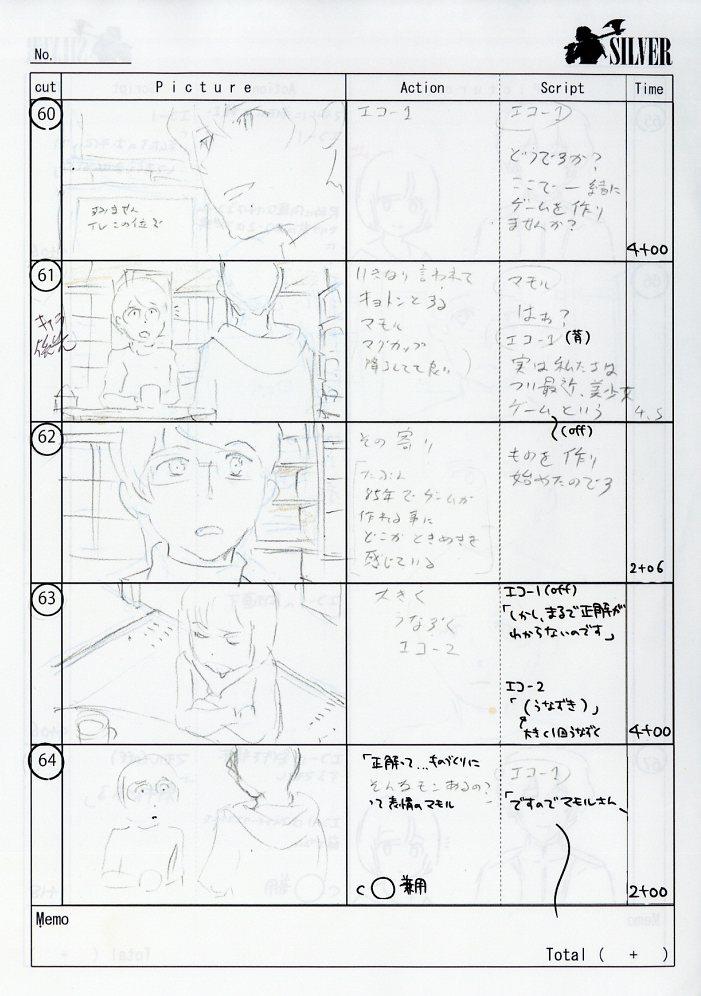 No.
SILVER
cut
Picture
Action
Script
Time
60
すみません
イレこの位で
エコー1
エコー1
どうですか?
ここで一緒に
ゲームを作り
ませんか?
4+00
61
キャラ
いきなり言われて
キョトンとする
マモル
マグカップ
マモル
はぁ?
エコー1(背)
実は私たちは
つい最近、美少女
ゲームという
4.5
62
その寄り
たぶん
85年でゲームが
作れる事に
どこかときめきを
感じている
(off)
ものを作り
始めたのです
2+06
63
大きく
うなずく
エコー2
エコー1(off)
「しかし、まるで正解が
わからないのです」
エコー2
「(うなずき)」
大きく1回うなずく
4+00
64
「正解って...ものづくりに
そんなモンあるの?
って表情のマモル
C ○ 兼用
エコー1
「ですのでマモルさん、
2+00
Memo
Total ( + )